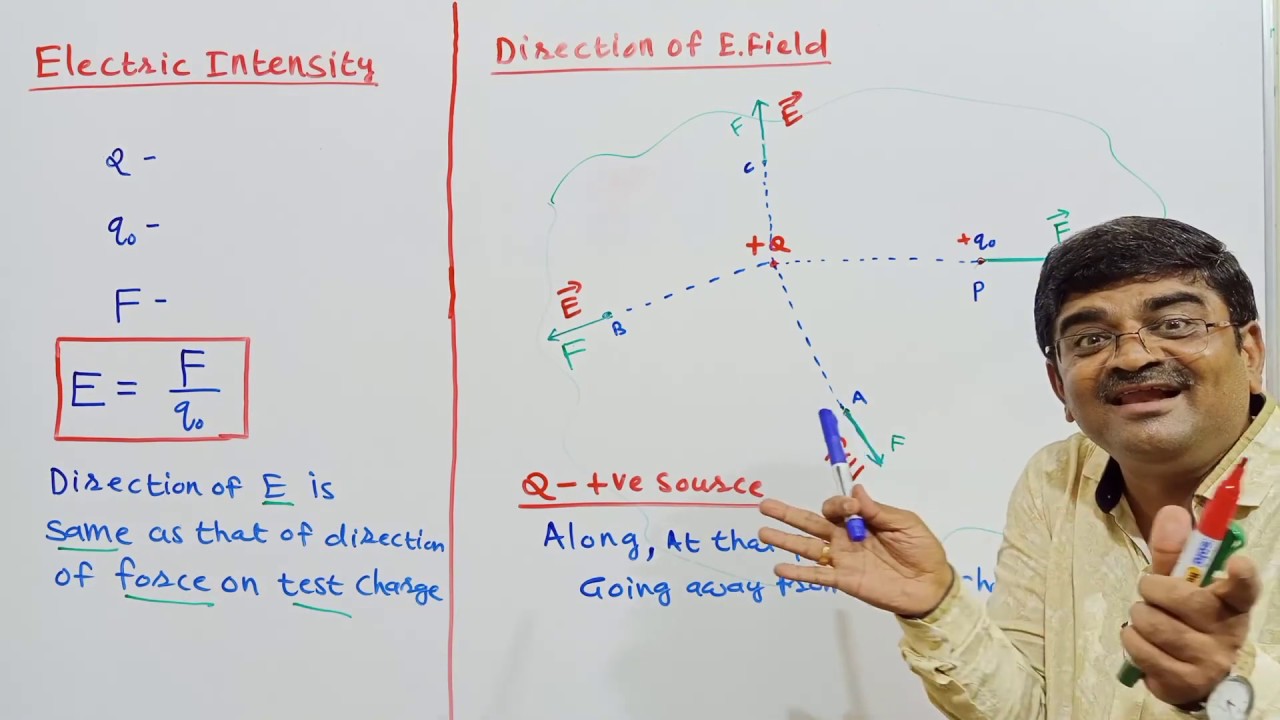 Electric Intensity
Q -
q₀ -
F -
E = F / q₀
Direction of E is
same as that of direction
of force on test charge
Direction of E.Field
F E
C
+Q
+q₀ F
P
E
B
F
A
F
Q - +ve source
Along, At that
Going away from